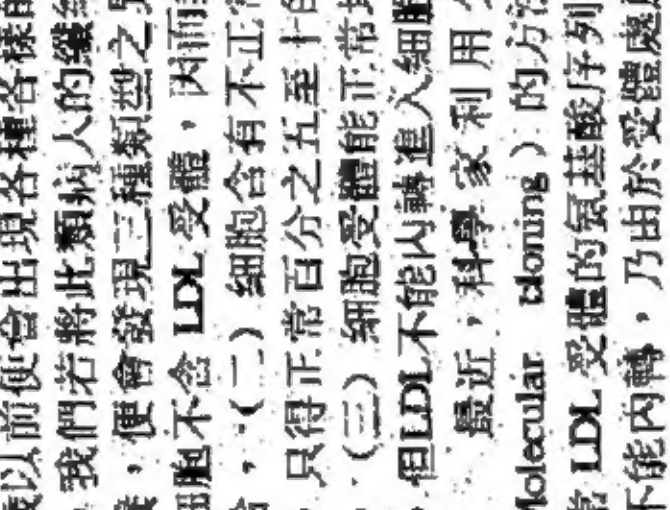 歲以前便會出現各種各樣的
我們若將此類病人的纖
,便會發現三種類型之
細胞不含 LDL 受體,因而
,(二)細胞含有不正常
只得正常百分之五至十的
,(三)細胞受體能正常
但LDL不能內轉進入細胞
最近,科學家利用
Molecular cloning)的方法
常 LDL 受體的氨基酸序列
不能內轉,乃由於受體處